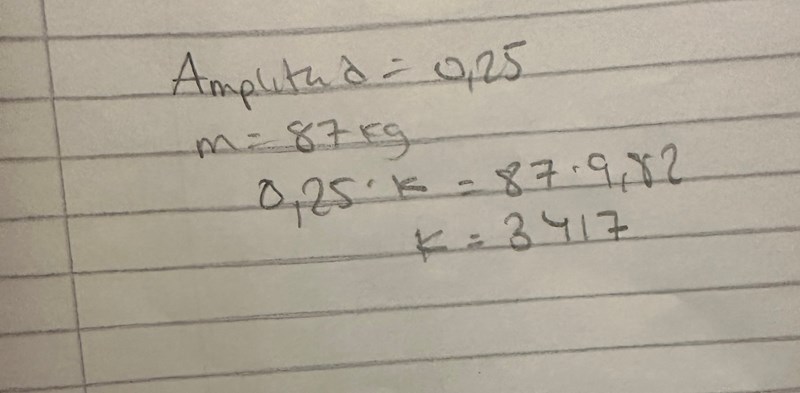 Amplitud = 0,25
m = 87 kg
0,25 · k = 87 · 9,82
k = 3417